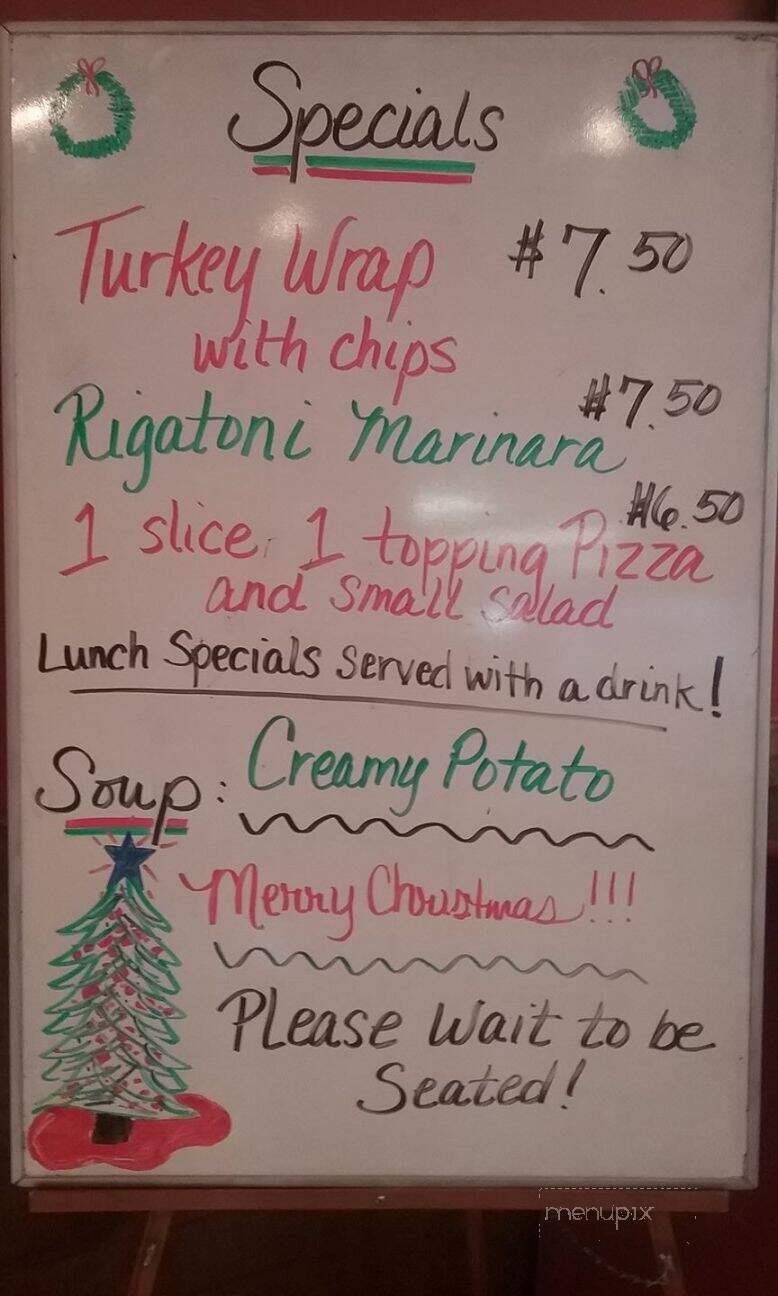 Specials
Turkey Wrap $7.50
with chips
$7.50
Rigatoni Marinara
$6.50
1 slice, 1 topping Pizza
and small salad
Lunch Specials served with a drink!
Soup: Creamy Potato
Merry Christmas!!!
Please Wait to be
Seated!
menupix